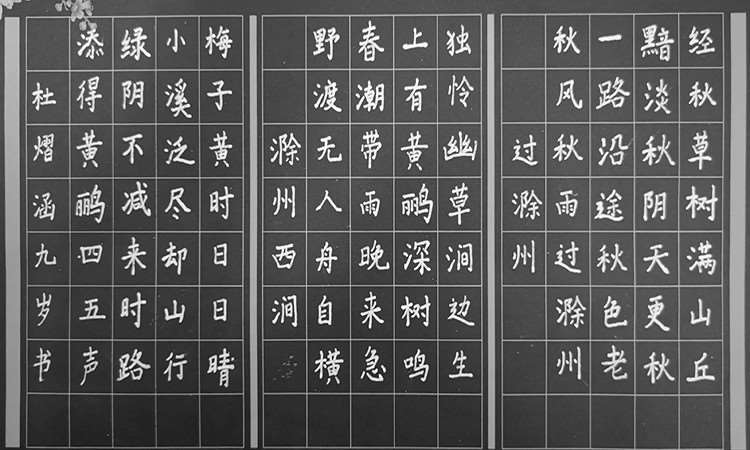 经秋草树满山丘
黯淡秋阴天更秋
一路沿途秋色老
秋风秋雨过滁州
过滁州
独怜幽草涧边生
上有黄鹂深树鸣
春潮带雨晚来急
野渡无人舟自横
滁州西涧
梅子黄时日日晴
小溪泛尽却山行
绿阴不减来时路
添得黄鹂四五声
杜熠涵九岁书